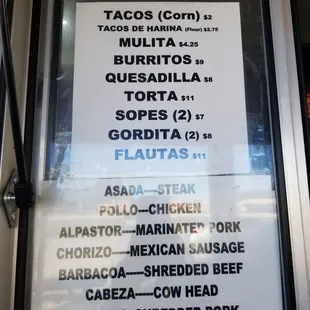 TACOS (Corn) $2
TACOS DE HARINA (Flour) $2.75
MULITA $4.25
BURRITOS $9
QUESADILLA $8
TORTA $11
SOPES (2) $7
GORDITA (2) $8
FLAUTAS $11
ASADA---STEAK
POLLO---CHICKEN
ALPASTOR---MARINATED PORK
CHORIZO---MEXICAN SAUSAGE
BARBACOA----SHREDDED BEEF
CABEZA----COW HEAD
SHREDDED PORK